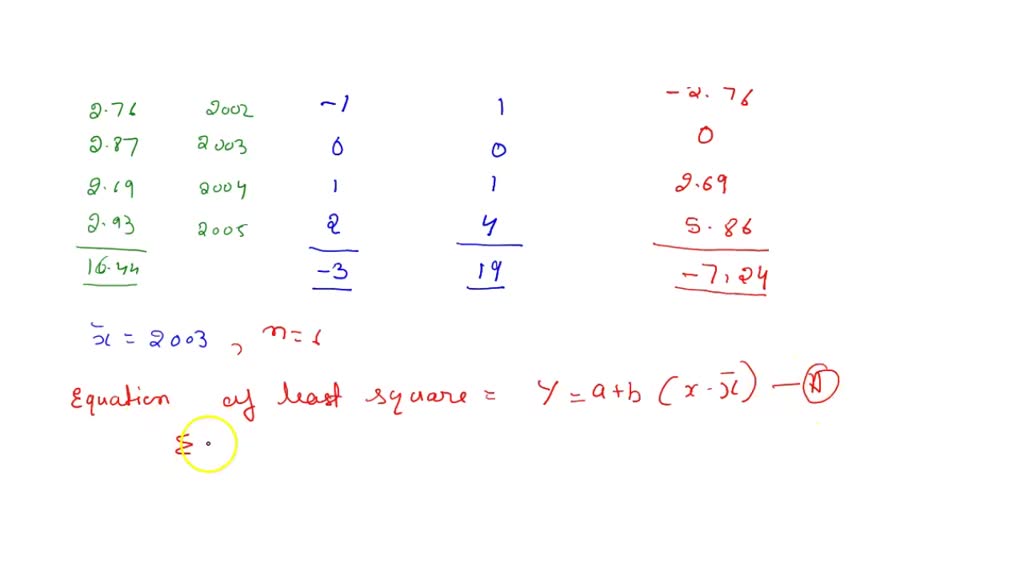 2.76 2002 -1 1 -2.76
2.87 2003 0 0 0
2.69 2004 1 1 2.69
2.93 2005 2 4 5.86
16.44 -3 19 -7.24
x̄ = 2003 , n=6
Equation of least square = Y = a+b (x-x̄) —
Σ